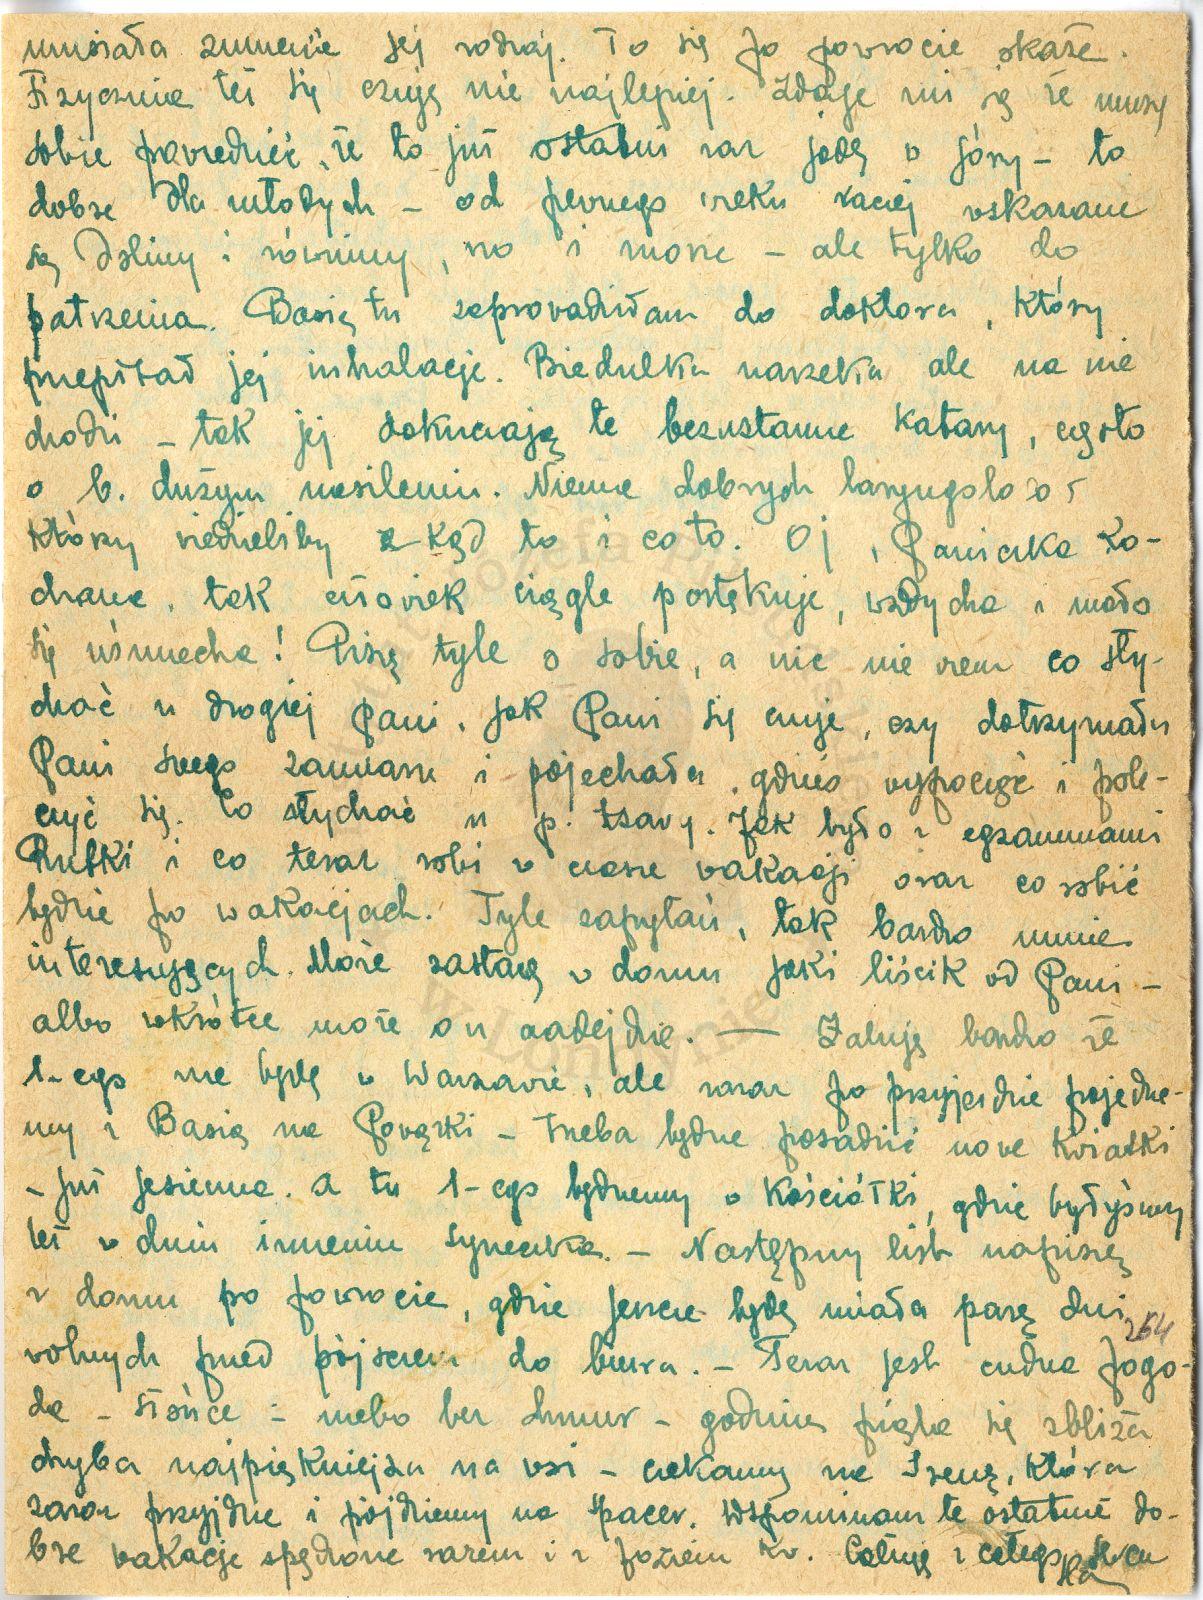 musiała zmienić jej rodzaj. To się po powrocie okaże.
Fizycznie też się czuję nie najlepiej. Zdaje mi się że muszę
sobie powiedzieć, że to już ostatni raz jadę w góry – to
dobre dla młodych – od pewnego wieku raczej wskazane
są doliny i równiny, no i morze – ale tylko do
patrzenia. Basię tu zaprowadziłam do doktora, który
przepisał jej inhalacje. Biedulka narzeka ale na nie
chodzi – tak jej dokuczają te bezustanne katary, często
o b. dużym nasileniu. Niema dobrych laryngologów
którzy wiedzieliby z kąd to i co to. Oj, Paniczka Ko-
chana, tak człowiek ciągle postękuje, wzdycha i mało
się uśmiecha! Piszę tyle o sobie, a nic nie wiem co sły-
chać u drogiej Pani, jak Pani się czuje, czy dotrzymała
Pani swego zamiaru i pojechała gdzieś wypocząć i pole-
czyć się. Co słychać u p. Jak było z egzaminami
Rutki i co teraz robi w czasie wakacji oraz co robić
będzie po wakacjach. Tyle zapytań, tak bardzo mnie
interesujących. Może zastanę w domu jaki liścik od Pani –
albo wkrótce może on nadejdzie. — Żałuję bardzo że
1-ego nie będę w Warszawie, ale zaraz po przyjeździe pojedzie-
my z Basią na Powązki – trzeba będzie posadzić nowe kwiatki
– już jesienne. A tu 1-ego będziemy w Kościółki, gdzie byłyśmy
też w dniu imienin Syneczka. – Następny list napiszę
z domu po powrocie, gdzie jeszcze będę miała parę dni
264
wolnych przed pójściem do biura. – Teraz jest cudna pogo-
da – słońce – niebo bez chmur – godzina piąta się zbliża
chyba najpiękniejsza na wsi – czekamy na Irenę, która
zaraz przyjdzie i pójdziemy na spacer. Wspominam te ostatnie do-
bre wakacje spędzone razem i z Józiem Kr. Całuję z całego serca
Instytut Józefa Piłsudskiego
w Londynie